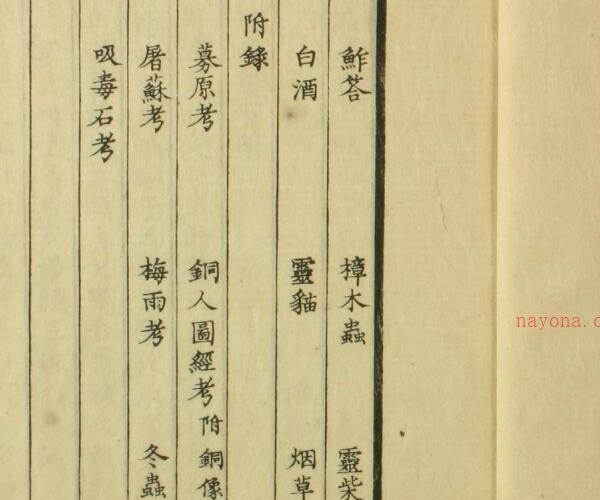 鮓荅 樟木蟲 靈柴
白酒 靈貓 烟草
附錄
募原考 銅人圖經考 附銅像
屠蘇考 梅雨考 冬蟲
吸毒石考
nayona.c